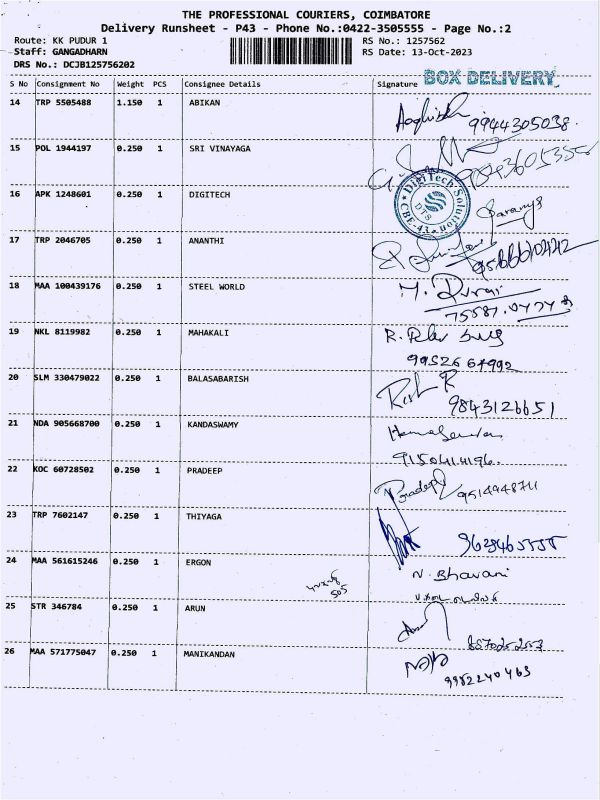 THE PROFESSIONAL COURIERS, COIMBATORE
Delivery Runsheet - P43 - Phone No.:0422-3505555 - Page No.:2
Route: KK PUDUR 1 RS No.: 1257562
Staff: GANGADHARN RS Date: 13-Oct-2023
DRS No.: DCJB125756202
BOX DELIVERY
S No Consignment No Weight PCS Consignee Details Signature
14 TRP 5505488 1.150 1 ABIKAN
9944305038.
15 POL 1944197 0.250 1 SRI VINAYAGA
16 APK 1248601 0.250 1 DIGITECH
DigiTech Solution
DTS
CBE-43
Saranya
17 TRP 2046705 0.250 1 ANANTHI
18 MAA 100439176 0.250 1 STEEL WORLD
M. Durai
19 NKL 8119982 0.250 1 MAHAKALI
99526 64992
20 SLM 330479022 0.250 1 BALASABARISH
9843126651
21 NDA 905668700 0.250 1 KANDASWAMY
9150414196.
22 KOC 60728502 0.250 1 PRADEEP
Pradeep 9514948711
23 TRP 7602147 0.250 1 THIYAGA
24 MAA 561615246 0.250 1 ERGON
N. Bhavani
505
25 STR 346784 0.250 1 ARUN
26 MAA 571775047 0.250 1 MANIKANDAN
9952240463